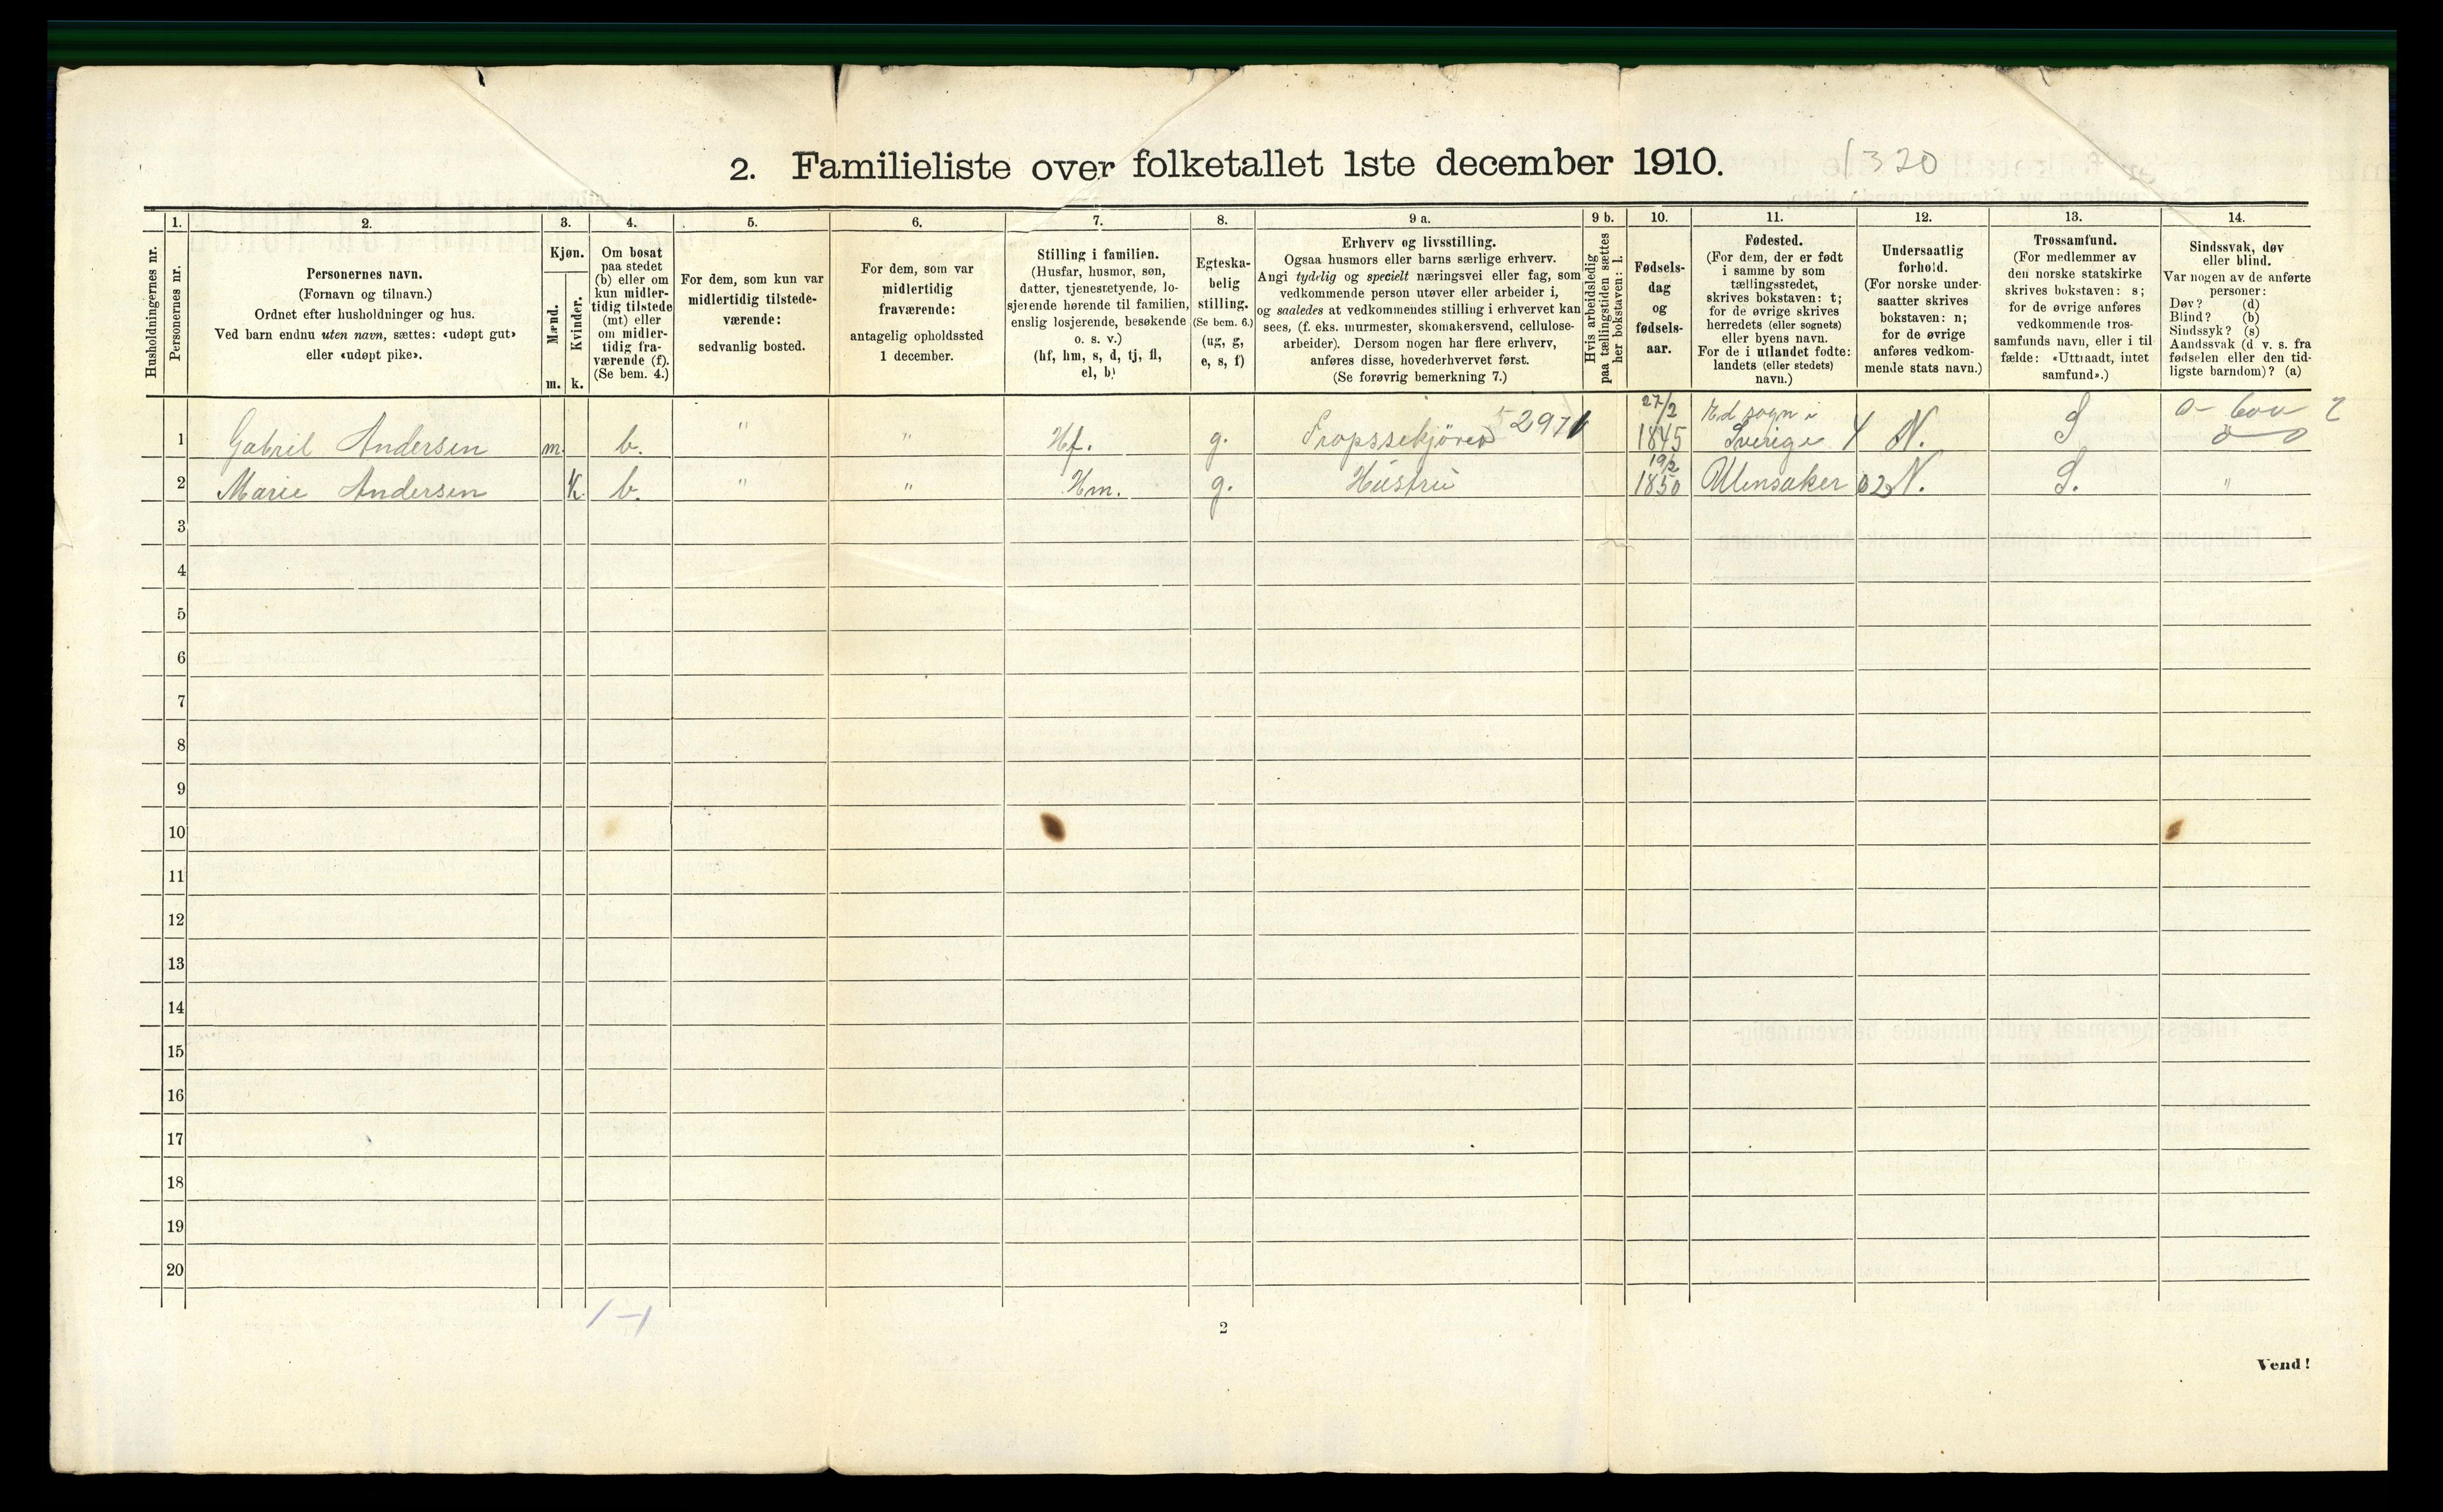 2. Familieliste over folketallet 1ste december 1910.
1320
Husholdningernes nr.
1.
Personernes nr.
2.
Personernes navn.
(Fornavn og tilnavn.)
Ordnet efter husholdninger og hus.
Ved barn endnu uten navn, sættes: «udøpt gut»
eller «udøpt pike».
3.
Kjøn.
Mænd.
Kvinder.
m. k.
4.
Om bosat
paa stedet
(b) eller om
kun midler-
tidig tilstede
(mt) eller
om midler-
tidig fra-
værende (f).
(Se bem. 4.)
5.
For dem, som kun var
midlertidig tilstede-
værende:
sedvanlig bosted.
6.
For dem, som var
midlertidig
fraværende:
antagelig opholdssted
1 december.
7.
Stilling i familien.
(Husfar, husmor, søn,
datter, tjenestetyende, lo-
sjerende hørende til familien,
enslig losjerende, besøkende
o. s. v.)
(hf, hm, s, d, tj, fl,
el, b)
8.
Egteska-
belig
stilling.
(Se bem. 6.)
(ug, g,
e, s, f)
9 a.
Erhverv og livsstilling.
Ogsaa husmors eller barns særlige erhverv.
Angi tydelig og specielt næringsvei eller fag, som
vedkommende person utøver eller arbeider i,
og saaledes at vedkommendes stilling i erhvervet kan
sees, (f. eks. murmester, skomakersvend, cellulose-
arbeider). Dersom nogen har flere erhverv,
anføres disse, hovederhvervet først.
(Se forøvrig bemerkning 7.)
9 b.
Hvis arbeidsledig
paa tællingstiden sættes
her bokstaven: l.
10.
Fødsels-
dag
og
fødsels-
aar.
11.
Fødested.
(For dem, der er født
i samme by som
tællingsstedet,
skrives bokstaven: t;
for de øvrige skrives
herredets (eller sognets)
eller byens navn.
For de i utlandet fødte:
landets (eller stedets)
navn.)
12.
Undersaatlig
forhold.
(For norske under-
saatter skrives
bokstaven: n;
for de øvrige
anføres vedkom-
mende stats navn.)
13.
Trossamfund.
(For medlemmer av
den norske statskirke
skrives bokstaven: s;
for de øvrige anføres
vedkommende tros-
samfunds navn, eller i til-
fælde: «Uttraadt, intet
samfund».)
14.
Sindssvak, døv
eller blind.
Var nogen av de anførte
personer:
Døv? (d)
Blind? (b)
Sindssyk? (s)
Aandssvak (d v. s. fra
fødselen eller den tid-
ligste barndom)? (a)
1 Gabril Andersen m. b. " " Hf. g. 27/2 1845 Ed sogn i Sverige N. S
2 Marie Andersen K. b. " " Hm. g. Hustru 19/2 1850 Ullensaker 02 N. S. "
3
4
5
6
7
8
9
10
11
12
13
14
15
16
17
18
19
20
2
Vend!